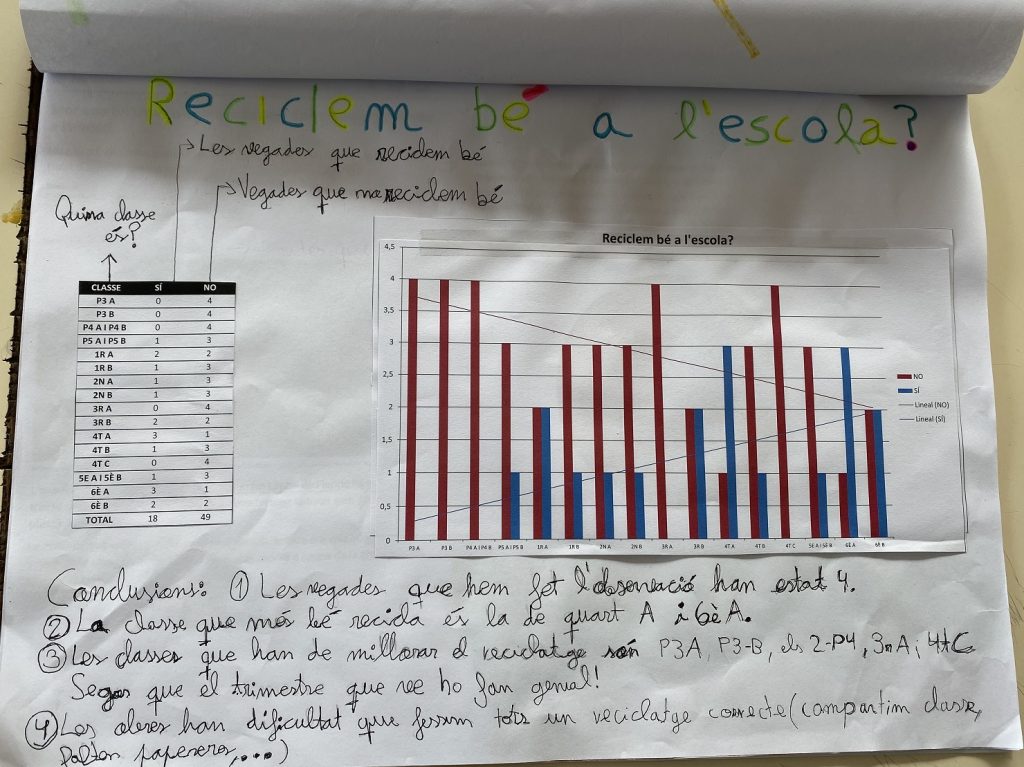 Reciclem bé a l'escola?
Les vegades que reciclem bé
Vegades que no reciclem bé
Quina classe
és?
CLASSE SÍ NO
P3 A 0 4
P3 B 0 4
P4 A I P4 B 0 4
P5 A I P5 B 1 3
1R A 2 2
1R B 1 3
2N A 1 3
2N B 1 3
3R A 0 4
3R B 2 2
4T A 3 1
4T B 1 3
4T C 0 4
5E A I 5È B 1 3
6È A 3 1
6È B 2 2
TOTAL 18 49
Reciclem bé a l'escola?
4,5
4
3,5
3
2,5
2
1,5
1
0,5
0
P3 A P3 B P4 A I P4 B P5 A I P5 B 1R A 1R B 2N A 2N B 3R A 3R B 4T A 4T B 4T C 5E A I 5È B 6È A 6È B
NO
SÍ
Lineal (NO)
Lineal (SÍ)
Conclusions: ① Les vegades que hem fet l'observació han estat 4.
② La classe que més bé recicla és la de quart A i 6è A.
③ Les classes que han de millorar el reciclatge són P3A, P3-B, els 2-P4, 3r A i 4t C
Segur que el trimestre que ve ho fan genial!
④ Les dificultat que fessim tots un reciclatge correcte (compartim classe,
falten papereres,...)